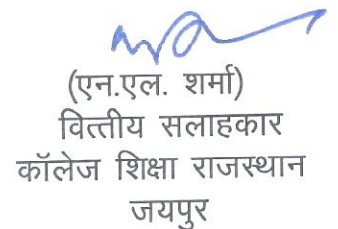 (एन.एल. शर्मा)
वित्तीय सलाहकार
कॉलेज शिक्षा राजस्थान
जयपुर